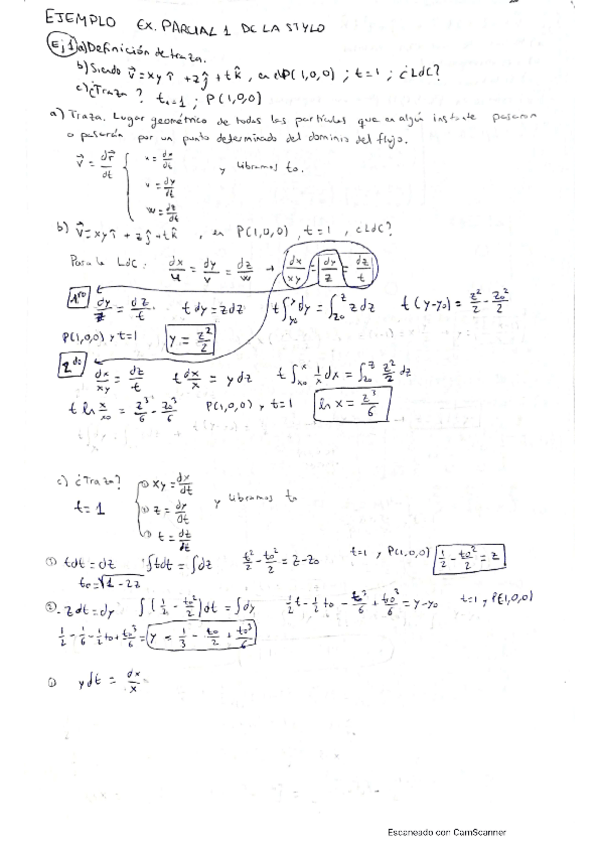 EJEMPLO EX. PARCIAL 1 DE LA STYLO
Ej1 a) Definición de traza.
b) Siendo v⃗ = xy î + z ĵ + t k̂, en el P(1,0,0) ; t=1 ; ¿LdC?
c) ¿Traza? t=1 ; P(1,0,0)
a) Traza. Lugar geométrico de todas las partículas que en algún instante pasaron
o pasarán por un punto determinado del dominio del flujo.
v⃗ = dr⃗/dt { u = dx/dt
v = dy/dt y libramos to.
w = dz/dt
b) v⃗ = xy î + z ĵ + t k̂ , en P(1,0,0) , t=1 , ¿LdC?
Para la LdC: dx/u = dy/v = dz/w → dx/xy = dy/z = dz/t
1ro dy/z = dz/t t dy = z dz t∫_{y0}^{y} dy = ∫_{z0}^{z} z dz t(y-y0) = z²/2 - z0²/2
P(1,0,0) y t=1 y = z²/2
2do dx/xy = dz/t t dx/x = y dz t∫_{x0}^{x} 1/x dx = ∫_{z0}^{z} z²/2 dz
t ln x/x0 = z³/6 - z0³/6 P(1,0,0) y t=1 ln x = z³/6
c) ¿Traza? { ① xy = dx/dt
t=1 ② z = dy/dt y libramos to
③ t = dz/dt
③ t dt = dz ∫t dt = ∫dz t²/2 - t0²/2 = z - z0 t=1 , P(1,0,0) 1/2 - t0²/2 = z
t0 = √1-2z
②. z dt = dy ∫(1/2 - t0²/2) dt = ∫dy 1/2 t - 1/2 t0 - t³/6 + t0³/6 = y - y0 t=1 , P(1,0,0)
1/2 - 1/6 - 1/2 t0 + t0³/6 = y = 1/3 - t0/2 + t0³/6
① y dt = dx/x
Escaneado con CamScanner